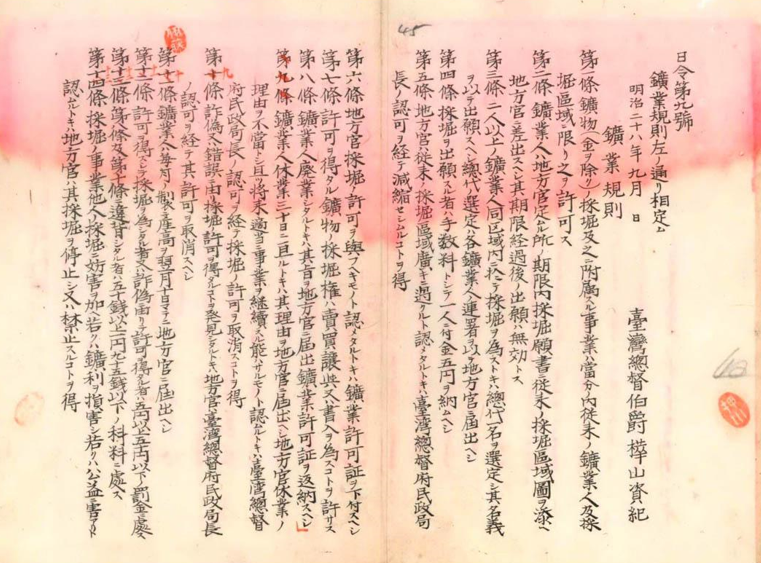 45
日令第九號
鑛業規則左ノ通リ相定ム
明治二十八年九月 日
臺灣總督伯爵樺山資紀
鑛業規則
第一條 鑛物(金ヲ除ク)採掘及之ニ附属スル事業ハ當分内従来ノ鑛業人及採
掘區域ニ限リ之ヲ許可ス
第二條 鑛業人ハ地方官定ムル所ノ期限内採掘願書ニ従来ノ採掘區域圖ヲ添ヘ
地方官ニ差出スヘシ其期限経過後ノ出願ハ無効トス
第三條 二人以上ノ鑛業人同區域内ニ於テ採掘ヲ為ストキハ總代一名ヲ選定シ其名義
ヲ以テ出願スヘシ總代選定ハ各鑛業人ノ連署ヲ以テ地方官ニ届出ヘシ
第四條 採掘ヲ出願スル者ハ手数料トシテ一人ニ付金五円ヲ納ムヘシ
第五條 地方官ハ従来ノ採掘區域廣キニ過クルト認メタルトキハ臺灣總督府民政局
長ノ認可ヲ経テ減縮セシムルコトヲ得
第六條 地方官採掘ノ許可ヲ與フヘキモノト認メタルトキハ鑛業許可証ヲ下付スヘシ
第七條 許可ヲ得タル鑛物ノ採掘権ハ賣買讓與又ハ書入ヲ為スコトヲ許サス
第八條 鑛業人廢業シタルトキハ其旨ヲ地方官ニ届出鑛業許可証ヲ返納スヘシ
第九條 鑛業人休業三十日ニ亘ルトキハ其理由ヲ地方官ニ届出ヘシ地方官休業ノ
理由ヲ不當トシ且将来適當ニ事業ヲ継續スル能ハサルモノト認ムルトキハ臺灣總督
府民政局長ノ認可ヲ経テ採掘ノ許可ヲ取消スコトヲ得
第十條 詐偽又ハ錯誤ニ由リ採掘ノ許可ヲ得タルコトヲ発見シタルトキハ地方官ハ臺灣總督府民政局長
ノ認可ヲ経テ其許可ヲ取消スヘシ
第十一條 鑛業人ハ毎月ノ製産高ヲ翌月十日マテニ地方官ニ届出ヘシ
第十二條 許可ヲ得スシテ採掘ヲ為シタル者又ハ詐偽ニ由リテ許可ヲ得タル者ハ
第十三條 第 條及第十條ニ違背シタル者ハ五十銭以上一円九十五銭以下ノ科料ニ處ス
第十四條 採掘ノ事業他人ノ採掘ニ妨害ヲ加ヘ若クハ鑛利ヲ損害シ若クハ公益ニ害アリト
認ムルトキハ地方官ハ其採掘ヲ停止シ又ハ禁止スルコトヲ得